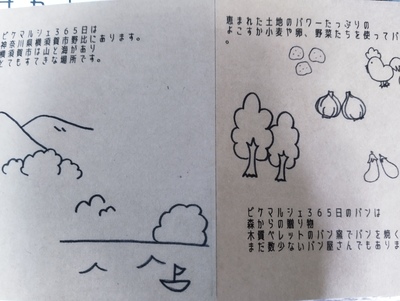 ピケマルシェ365日は
神奈川県横須賀市野比にあります。
横須賀市は山と海があり
とてもすてきな場所です。
恵まれた土地のパワーたっぷりの
よこすか小麦や卵、野菜たちを使ってパ
。
ピケマルシェ365日のパンは
森からの贈り物
木質ペレットのパン窯でパンを焼く
まだ数少ないパン屋さんでもありま